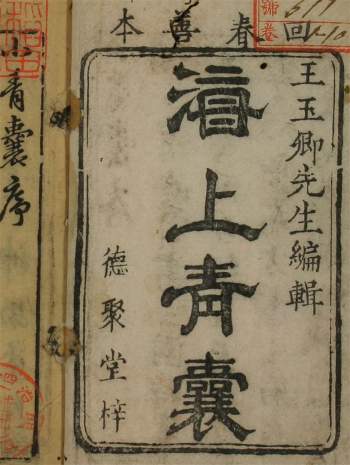 回春善本
王玉卿先生編輯
海上青囊
德聚堂梓
小青囊序